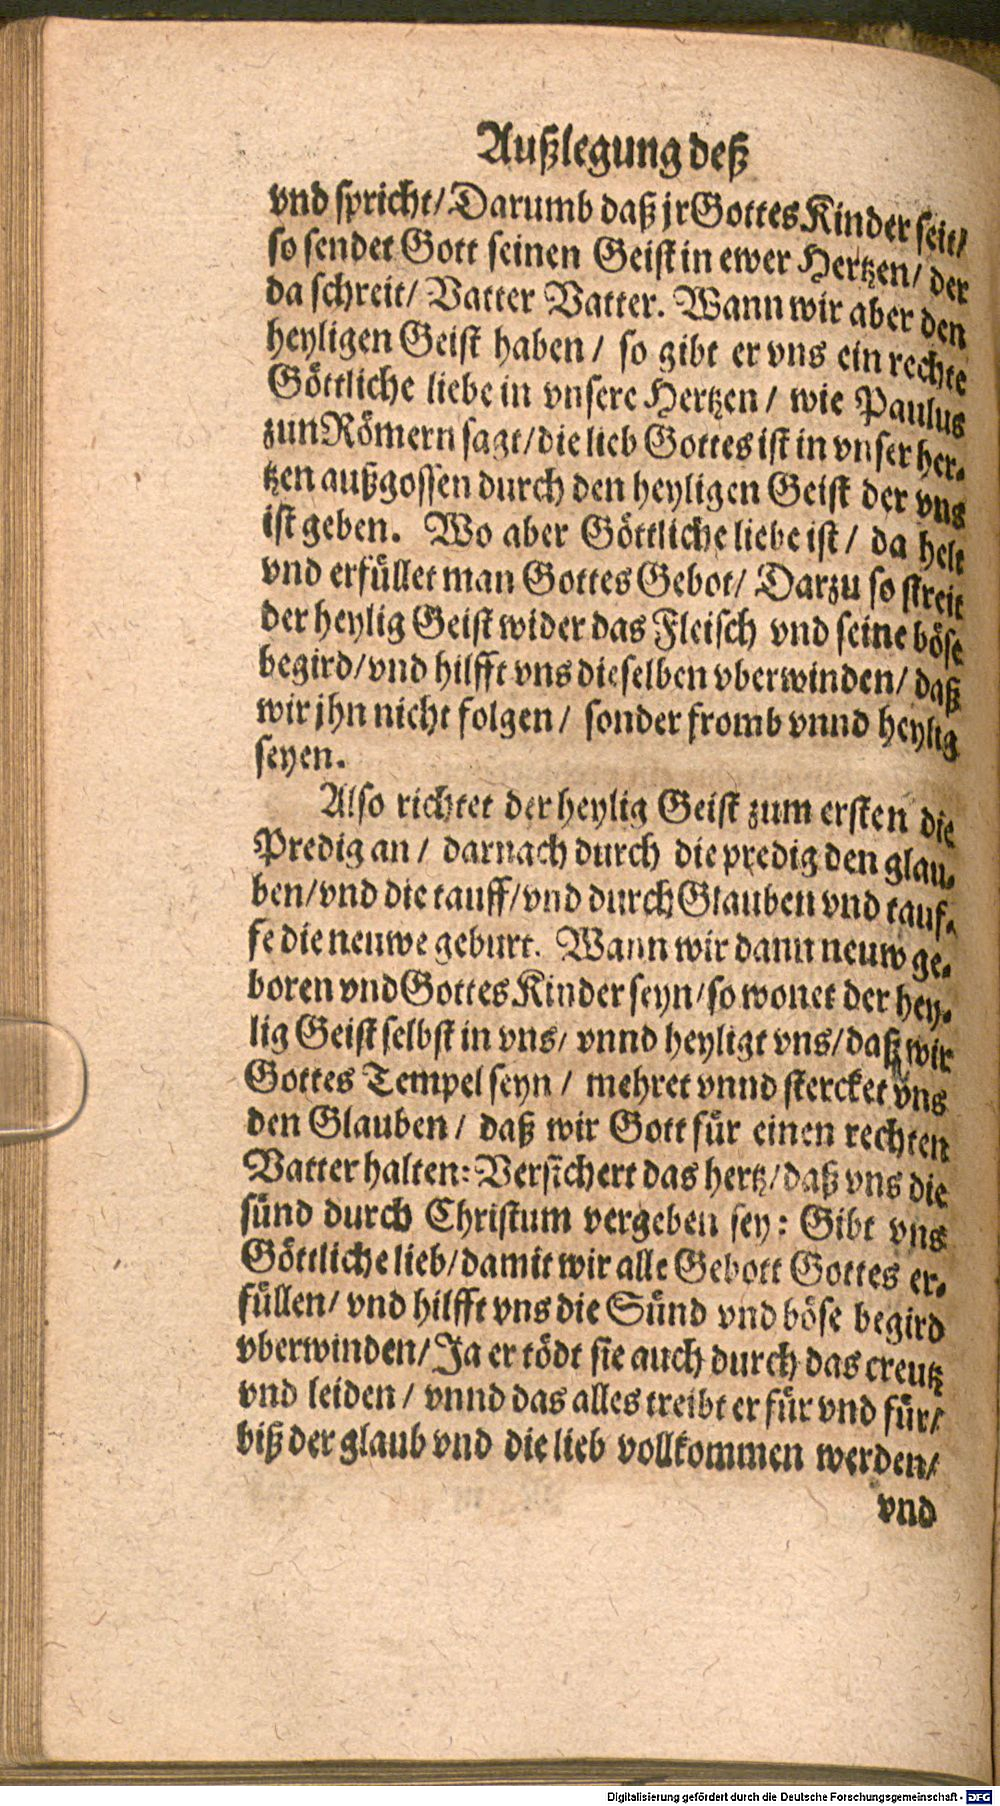 Außlegung deß
vnd spricht/ Darumb daß jr Gottes Kinder seit/
so sendet Gott seinen Geist in ewer Hertzen/ der
da schreit/ Vatter Vatter. Wann wir aber den
heyligen Geist haben/ so gibt er vns ein rechte
Göttliche liebe in vnsere Hertzen/ wie Paulus
zun Römern sagt/ die lieb Gottes ist in vnser her-
tzen außgossen durch den heyligen Geist der vns
ist geben. Wo aber Göttliche liebe ist/ da helt
vnd erfüllet man Gottes Gebot/ Darzu so streit
der heylig Geist wider das Fleisch vnd seine böse
begird/ vnd hilfft vns dieselben vberwinden/ daß
wir jhn nicht folgen/ sonder fromb vnnd heylig
seyen.
Also richtet der heylig Geist zum ersten die
Predig an/ darnach durch die predig den glau-
ben/ vnd die tauff/ vnd durch Glauben vnd tauf-
fe die neuwe geburt. Wann wir dann neuw ge-
boren vnd Gottes Kinder seyn/ so wonet der hey-
lig Geist selbst in vns/ vnnd heyligt vns/ daß wir
Gottes Tempel seyn/ mehret vnnd stercket vns
den Glauben/ daß wir Gott für einen rechten
Vatter halten: Versichert das hertz/ daß vns die
sünd durch Christum vergeben sey: Gibt vns
Göttliche lieb/ damit wir alle Gebott Gottes er-
füllen/ vnd hilfft vns die Sünd vnd böse begird
vberwinden/ Ja er tödt sie auch durch das creutz
vnd leiden/ vnnd das alles treibt er für vnd für/
biß der glaub vnd die lieb vollkommen werden/
vnd
Digitalisierung gefördert durch die Deutsche Forschungsgemeinschaft - DFG